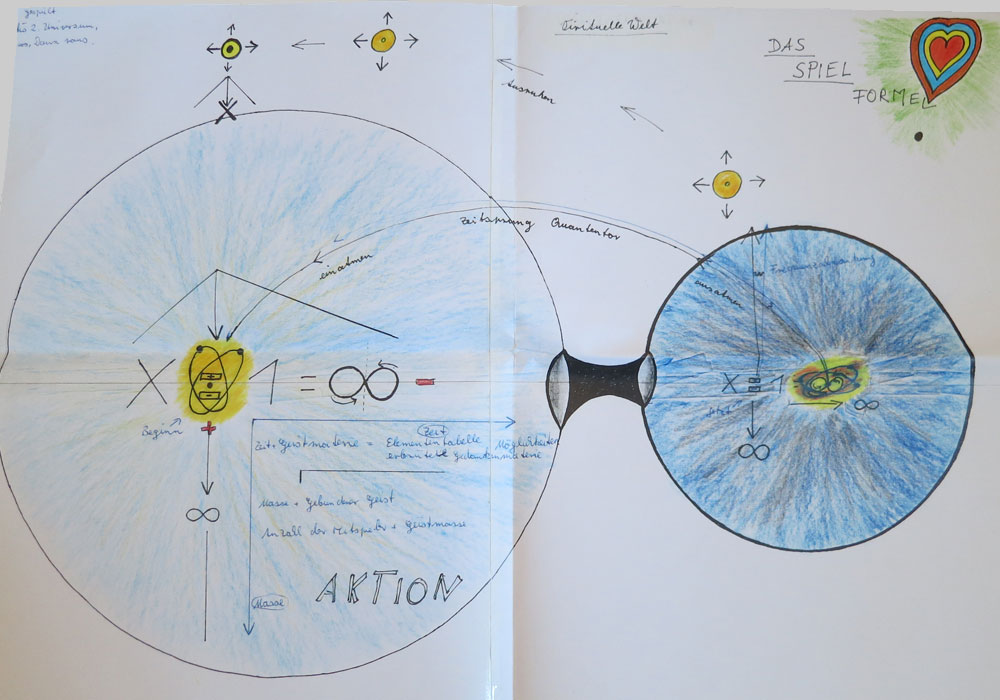 gespielt
2. Universum,
Virtuelle Welt
DAS
SPIEL
FORMEL
ausruhen
Zeitsprung Quantentor
einatmen
ausatmen
X 1 = ∞ -
X = 1
∞
∞
Beginn
+
Zeit
Zeit + Geistmaterie = Elemententabelle Möglichkeiten
erkannte Gedankenmaterie
∞
Masse + Gebundner Geist
Anzall der Mitspieler + Geistmasse
AKTION
Masse